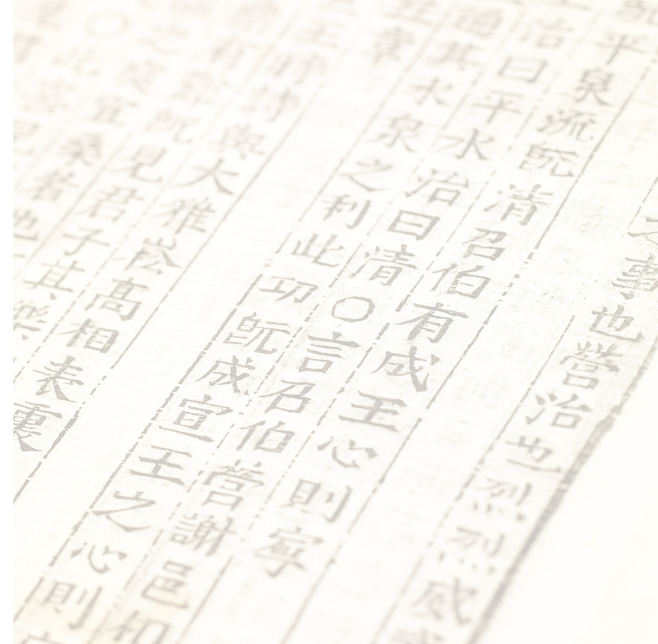 之事也營治也烈烈威
平泉流旣清召伯有成王心則寧
治曰平水治曰清○言召伯營謝邑相
通其水泉之利此功旣成宣王之心則
五章
王時詩與大雅崧高相表裏
旣見君子其樂
宜桑者也